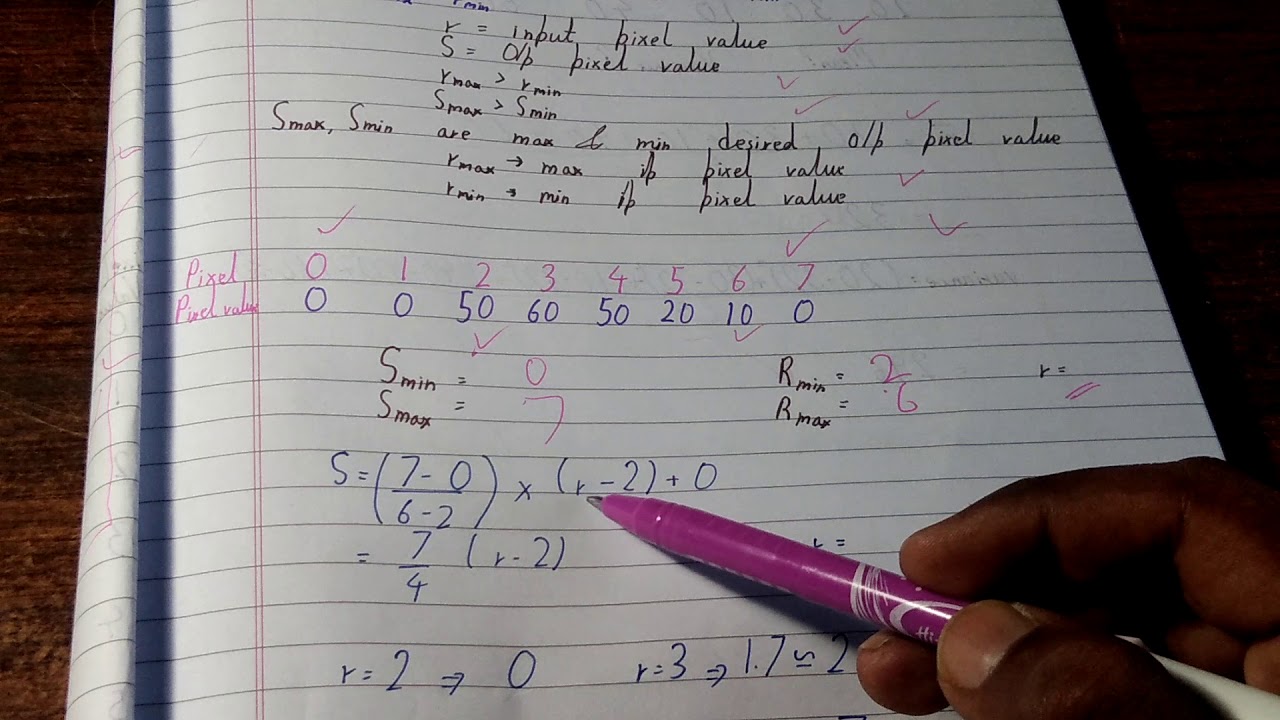 min
r = input pixel value
S = O/p pixel value
rmax > rmin
Smax > Smin
Smax, Smin are max & min desired o/p pixel value
rmax → max i/p pixel value
rmin → min i/p pixel value
Pixel 0 1 2 3 4 5 6 7
Pixel value 0 0 50 60 50 20 10 0
Smin = 0 Rmin = 2 r =
Smax = 7 Rmax = 6
S = (7-0 / 6-2) × (r-2) + 0
= 7/4 (r-2) r =
r = 2 ⇒ 0 r = 3 ⇒ 1.7 ≃ 2